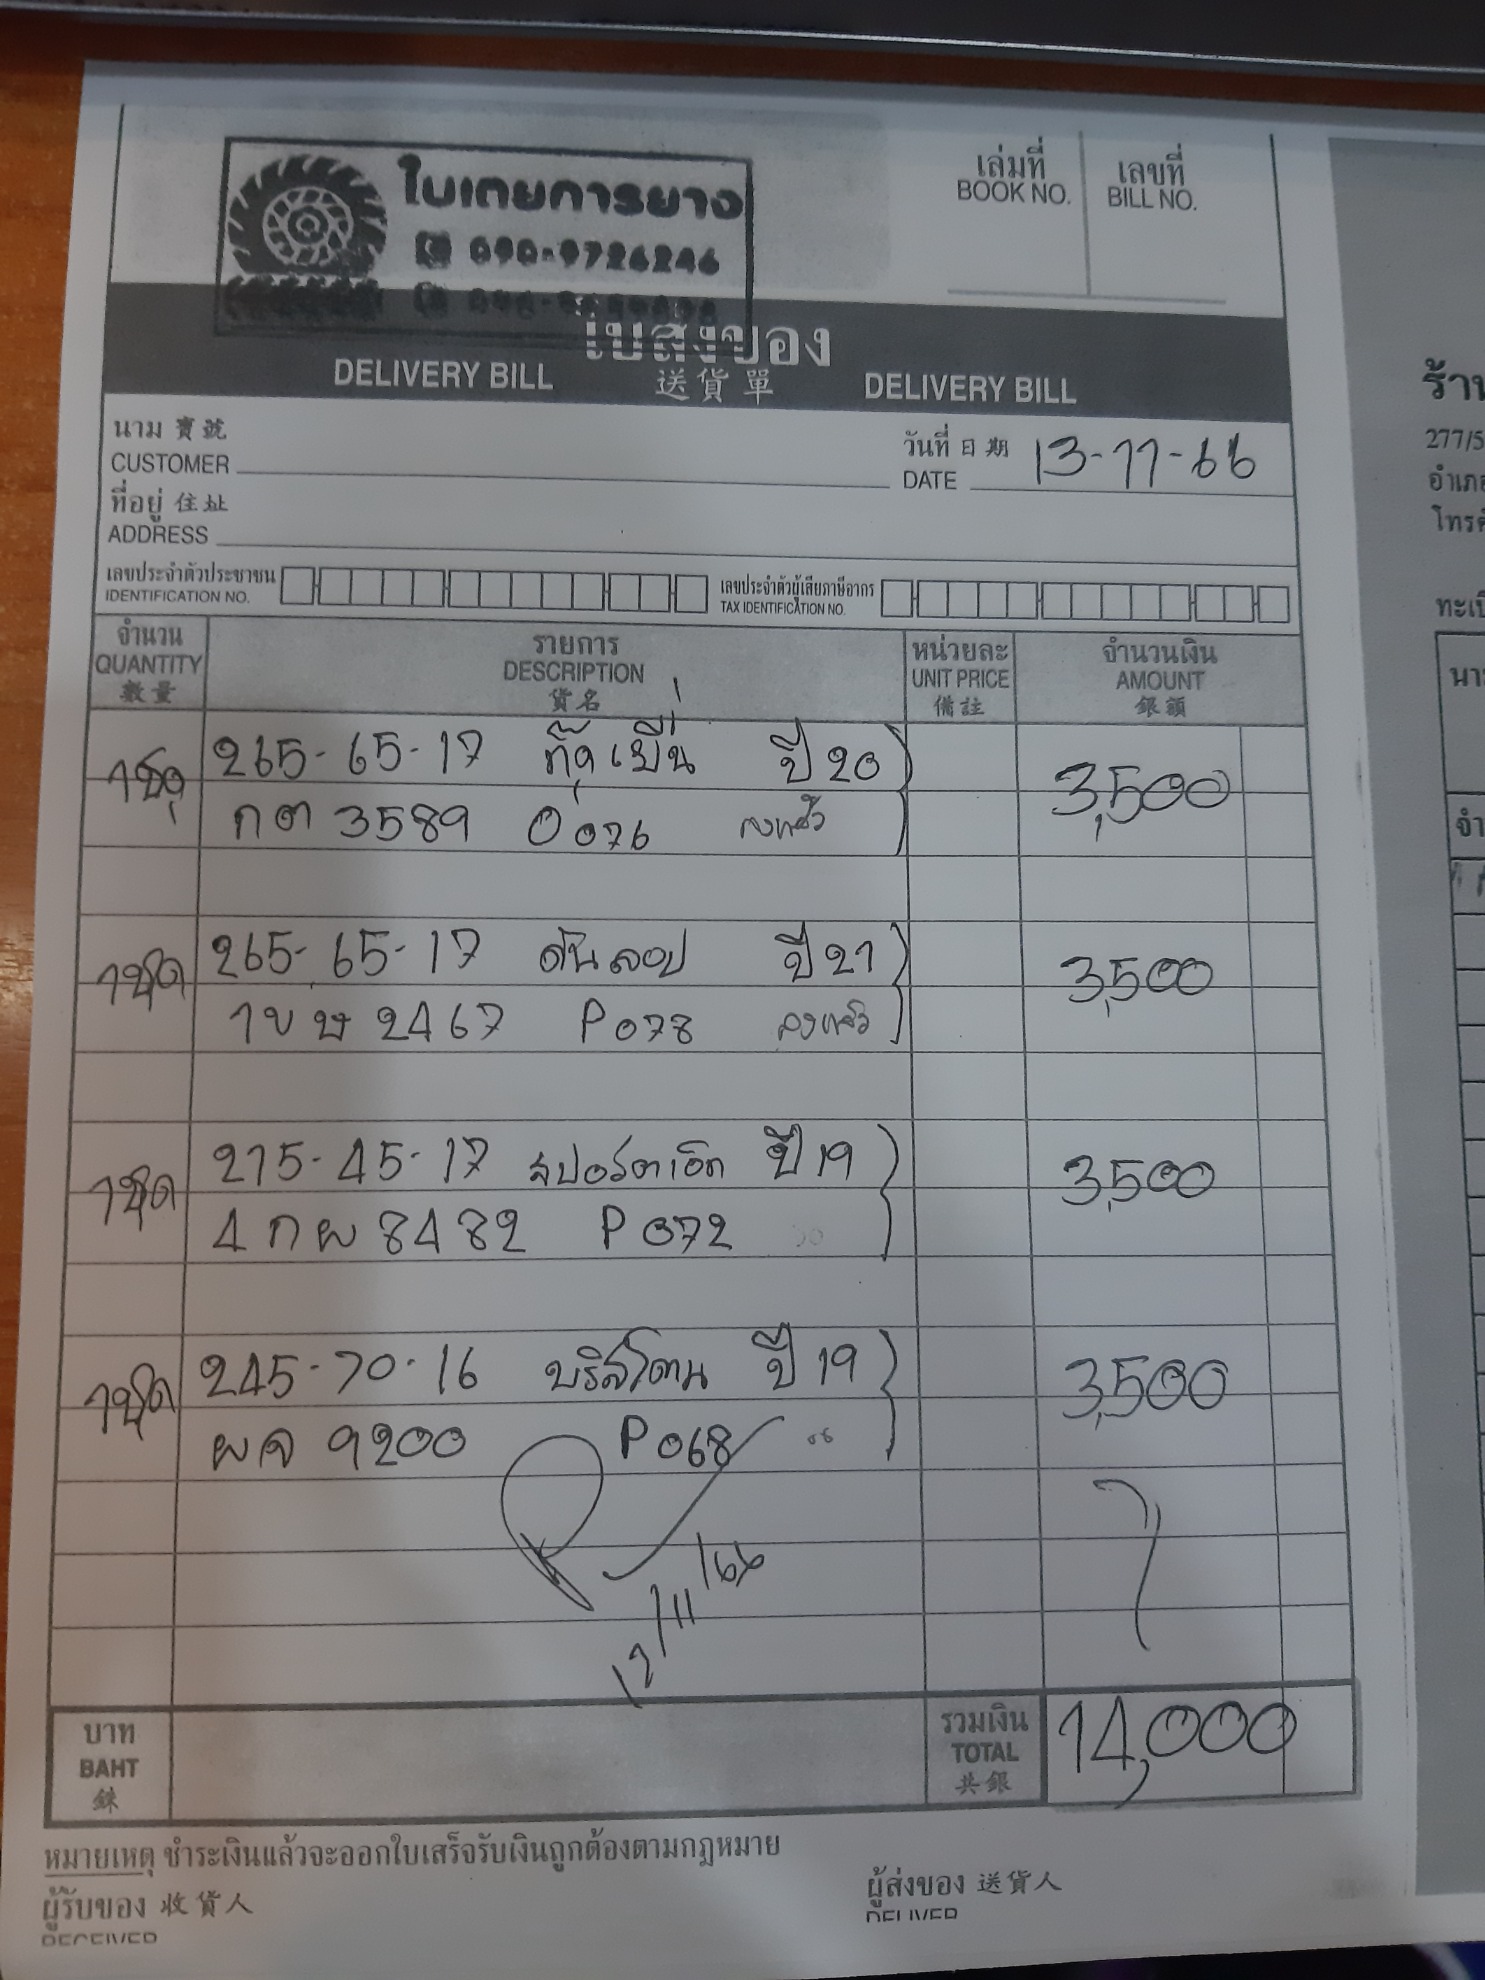 ใบเตยการยาง
090-9726246
เล่มที่
BOOK NO.
เลขที่
BILL NO.
ใบส่งของ
DELIVERY BILL 送貨單 DELIVERY BILL
นาม 寶號
CUSTOMER
วันที่ 日期 13-11-66
DATE
ที่อยู่ 住址
ADDRESS
เลขประจำตัวประชาชน
IDENTIFICATION NO.
เลขประจำตัวผู้เสียภาษีอากร
TAX IDENTIFICATION NO.
จำนวน
QUANTITY
數量
รายการ
DESCRIPTION
貨名
หน่วยละ
UNIT PRICE
備註
จำนวนเงิน
AMOUNT
銀額
1ชุด 265-65-17 ปี 20 3,500
กต 3589 O076 ลงแล้ว
1ชุด 265-65-17 ดันลอป ปี 21 3,500
1ขษ 2467 P078 ลงแล้ว
1ชุด 215-45-17 สปอร์ตเอ็ก ปี 19 3,500
4กผ 8482 P072
1ชุด 245-70-16 บริสโตน ปี 19 3,500
ผจ 9200 P068
12/11/66
บาท
BAHT
銖
รวมเงิน
TOTAL
共銀
14,000
หมายเหตุ ชำระเงินแล้วจะออกใบเสร็จรับเงินถูกต้องตามกฎหมาย
ผู้รับของ 收貨人
RECEIVER
ผู้ส่งของ 送貨人
DELIVER
ร้าน
277/5
อำเภอ